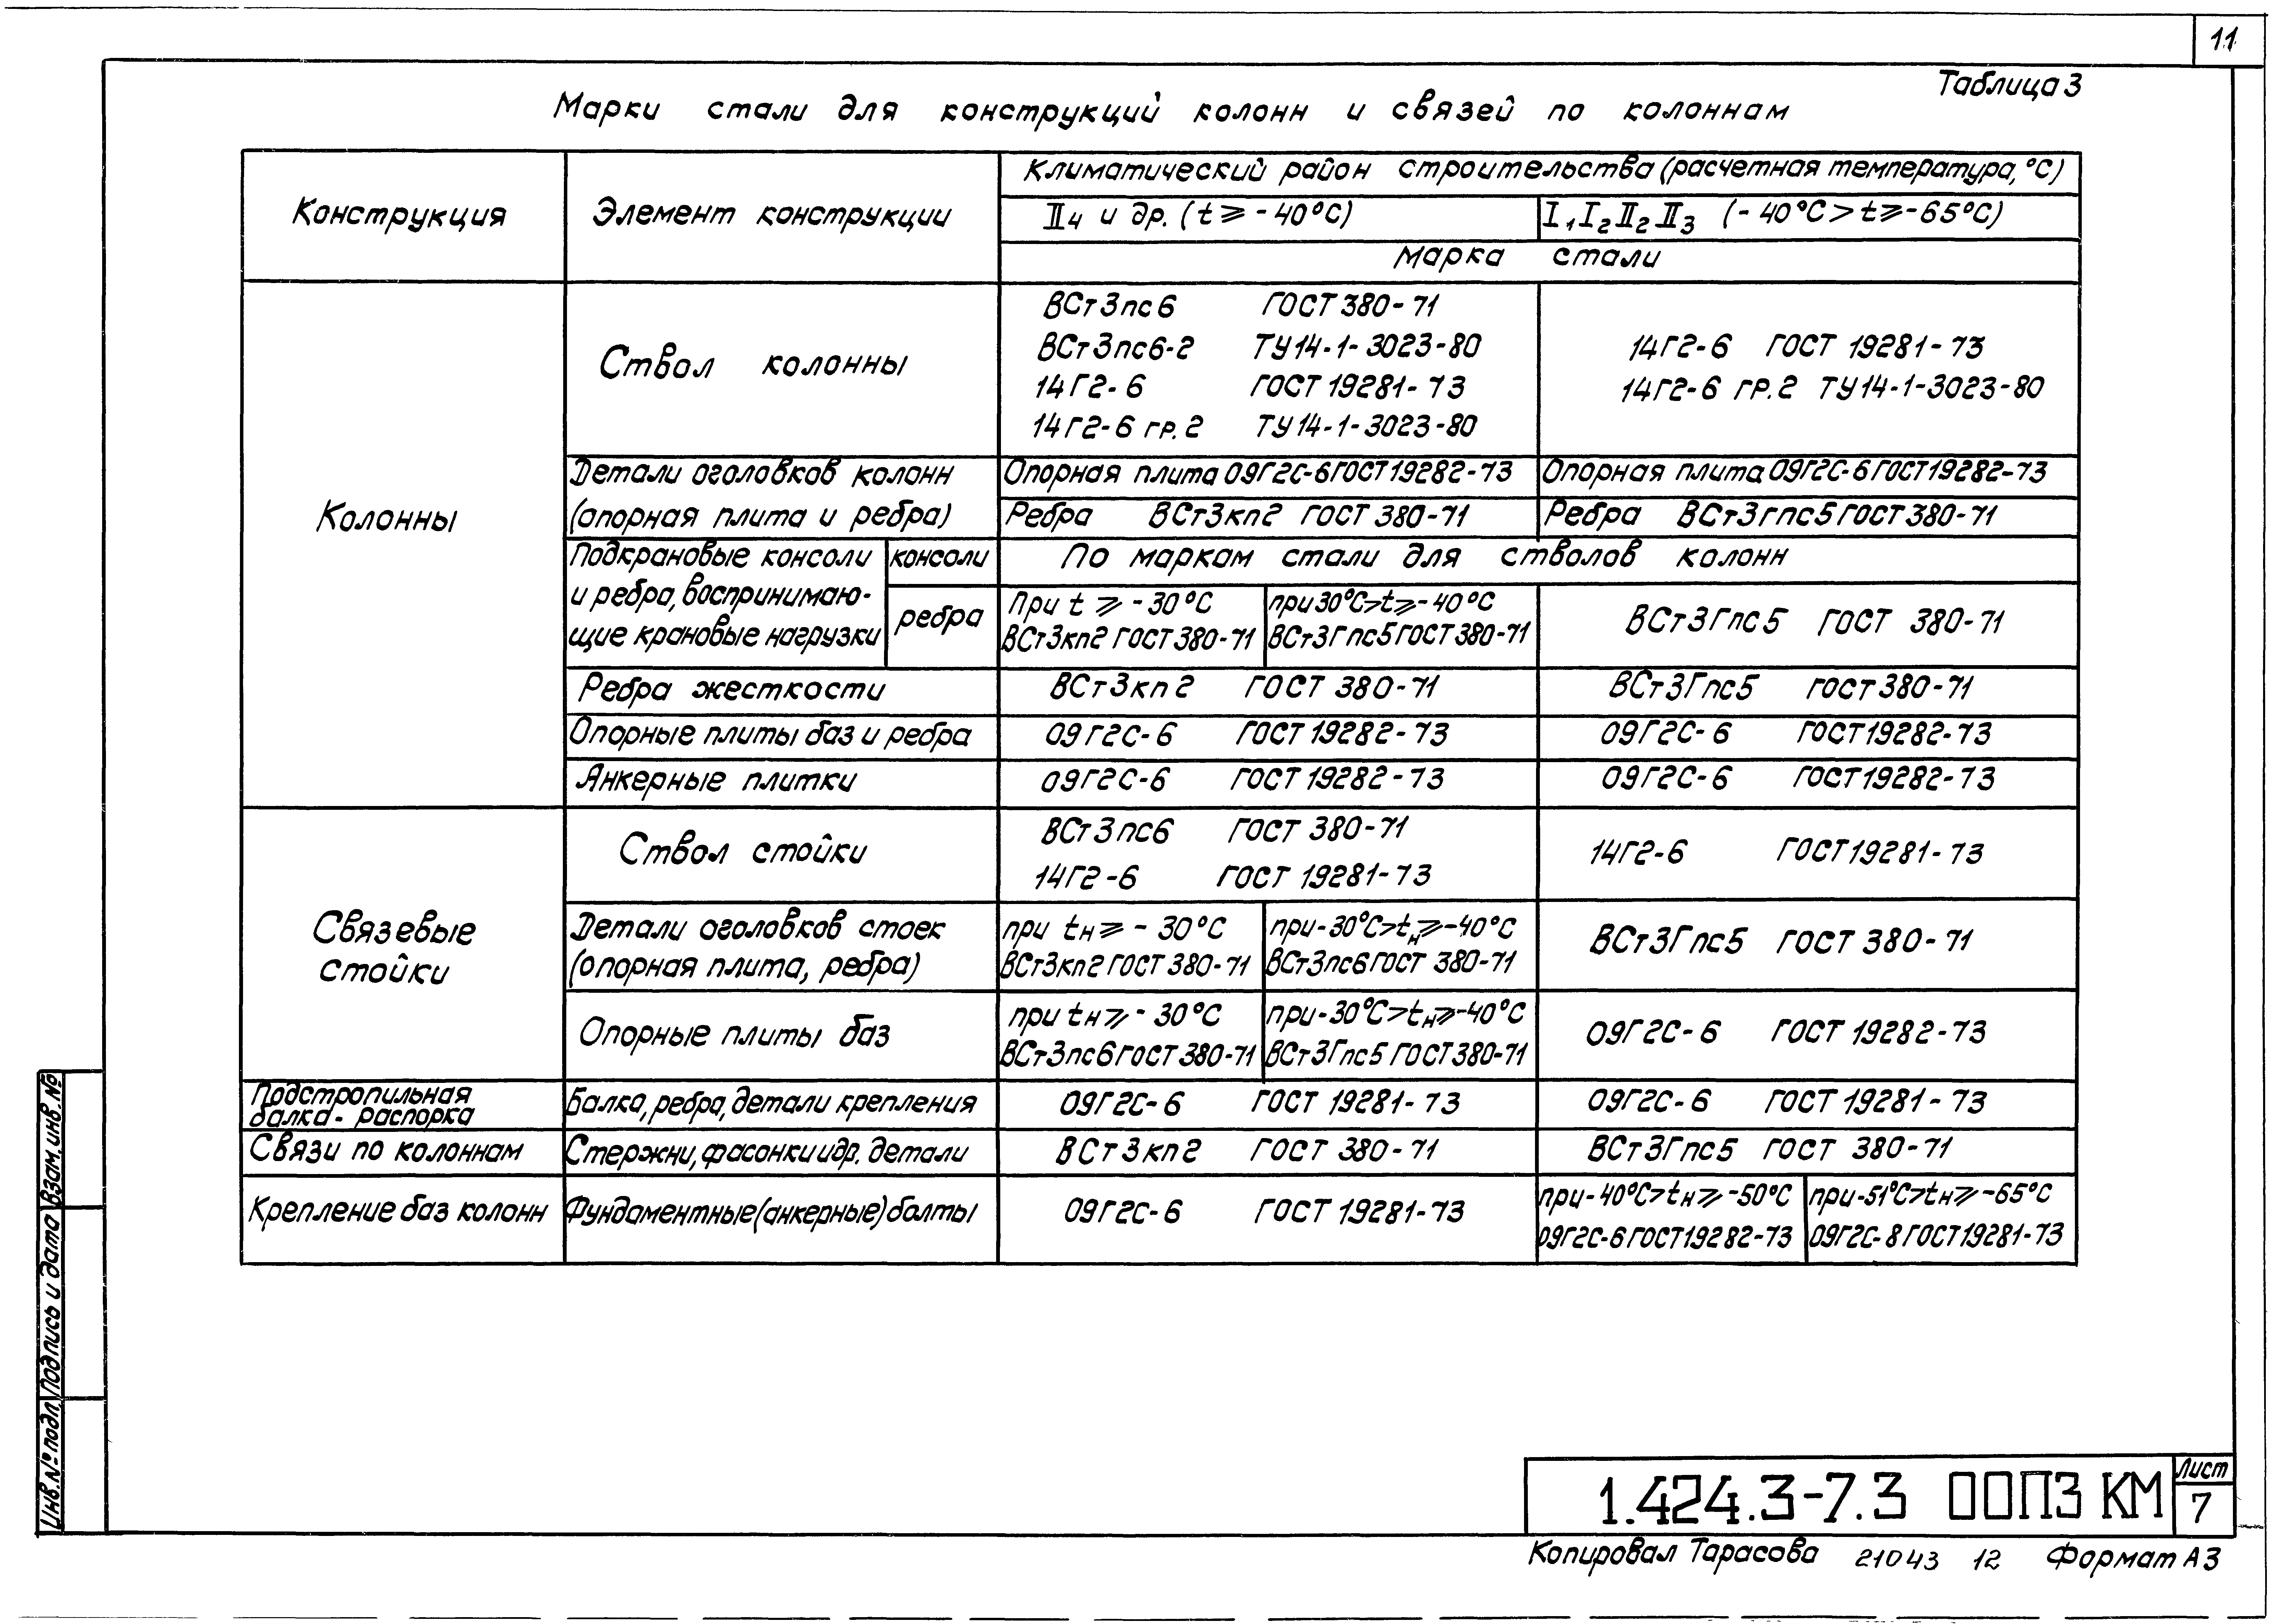 11
Таблица 3
Марки стали для конструкций колонн и связей по колоннам
Конструкция
Элемент конструкции
Климатический район строительства (расчетная температура, °С)
II4 и др. (t ⩾ -40°С)
I1 I2 II2 II3 (-40°С > t ⩾ -65°С)
Марка стали
Колонны
Ствол колонны
ВСт3пс6 ГОСТ 380-71
ВСт3пс6-2 ТУ14-1-3023-80
14Г2-6 ГОСТ 19281-73
14Г2-6 гр.2 ТУ14-1-3023-80
14Г2-6 ГОСТ 19281-73
14Г2-6 гр.2 ТУ14-1-3023-80
Детали оголовков колонн
(опорная плита и ребра)
Опорная плита 09Г2С-6 ГОСТ 19282-73
Опорная плита 09Г2С-6 ГОСТ 19282-73
Ребра ВСт3кп2 ГОСТ 380-71
Ребра ВСт3гпс5 ГОСТ 380-71
Подкрановые консоли
и ребра, воспринимаю-
щие крановые нагрузки
консоли
По маркам стали для стволов колонн
ребра
При t ⩾ -30°С
ВСт3кп2 ГОСТ 380-71
при 30°С>t⩾-40°С
ВСт3Гпс5 ГОСТ 380-71
ВСт3Гпс5 ГОСТ 380-71
Ребра жесткости
ВСт3кп2 ГОСТ 380-71
ВСт3Гпс5 ГОСТ 380-71
Опорные плиты баз и ребра
09Г2С-6 ГОСТ 19282-73
09Г2С-6 ГОСТ 19282-73
Анкерные плитки
09Г2С-6 ГОСТ 19282-73
09Г2С-6 ГОСТ 19282-73
Связевые
стойки
Ствол стойки
ВСт3пс6 ГОСТ 380-71
14Г2-6 ГОСТ 19281-73
14Г2-6 ГОСТ 19281-73
Детали оголовков стоек
(опорная плита, ребра)
при tн ⩾ -30°С
ВСт3кп2 ГОСТ 380-71
при -30°С>tн⩾-40°С
ВСт3пс6 ГОСТ 380-71
ВСт3Гпс5 ГОСТ 380-71
Опорные плиты баз
при tн ⩾ -30°С
ВСт3пс6 ГОСТ 380-71
при -30°С>tн⩾-40°С
ВСт3Гпс5 ГОСТ 380-71
09Г2С-6 ГОСТ 19282-73
Подстропильная
балка-распорка
Балка, ребра, детали крепления
09Г2С-6 ГОСТ 19281-73
09Г2С-6 ГОСТ 19281-73
Связи по колоннам
Стержни, фасонки и др. детали
ВСт3кп2 ГОСТ 380-71
ВСт3Гпс5 ГОСТ 380-71
Крепление баз колонн
Фундаментные (анкерные) болты
09Г2С-6 ГОСТ 19281-73
при -40°С>tн⩾-50°С
09Г2С-6 ГОСТ 19282-73
при -51°С>tн⩾-65°С
09Г2С-8 ГОСТ 19281-73
Инв. № подл. Подпись и дата Взам. инв. №
1.424.3-7.3 00ПЗ КМ
Лист
7
Копировал Тарасова 21043 12 Формат А3